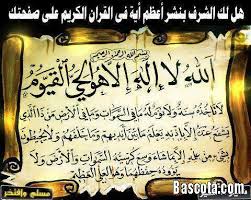 هل لك الشرف بنشر أعظم أية فى القرآن الكريم على صفحتك
بسم الله الرحمن الرحيم
الله لا إله إلا هو الحي القيوم
لا تأخذه سنة ولا نوم له ما في السموات وما في الأرض من ذا الذي
يشفع عنده إلا بإذنه يعلم ما بين أيديهم وما خلفهم ولا يحيطون
بشيء من علمه إلا بما شاء وسع كرسيه السموات والأرض ولا
يؤوده حفظهما وهو العلي العظيم
مسلم وافتخر
Bascota.com